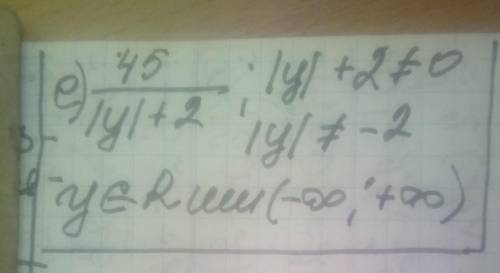 е) 45 / |y| + 2 ; |y| + 2 ≠ 0
|y| ≠ -2
y ∈ R или (-∞; +∞)